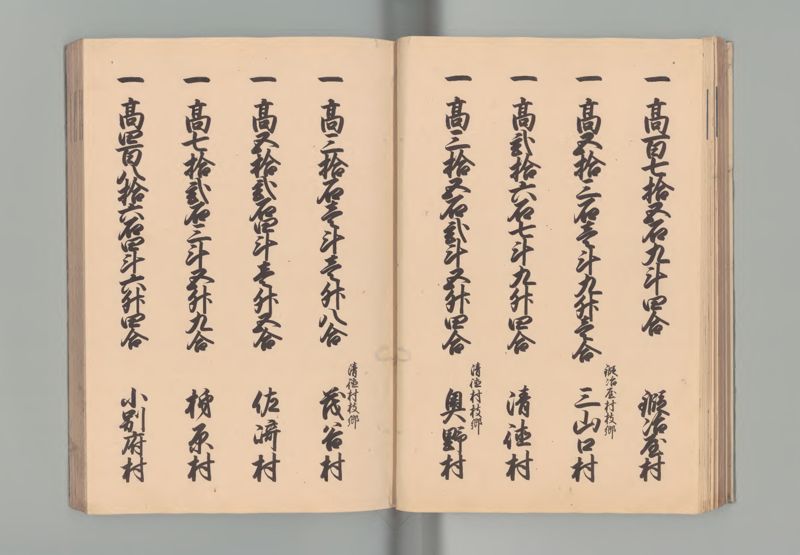 一 高百七拾五石九斗四合 鍛冶屋村
鍛冶屋村枝郷
一 高五拾三石壱斗九升壱合 三山口村
一 高弐拾六石七斗九升四合 清徳村
清徳村枝郷
一 高三拾五石弐斗五升四合 奥野村
清徳村枝郷
一 高三拾石壱斗壱升八合 茂谷村
一 高五拾弐石四斗壱升五合 佐崎村
一 高七拾弐石三斗五升九合 栃原村
一 高四百八拾六石四斗六升四合 小別府村